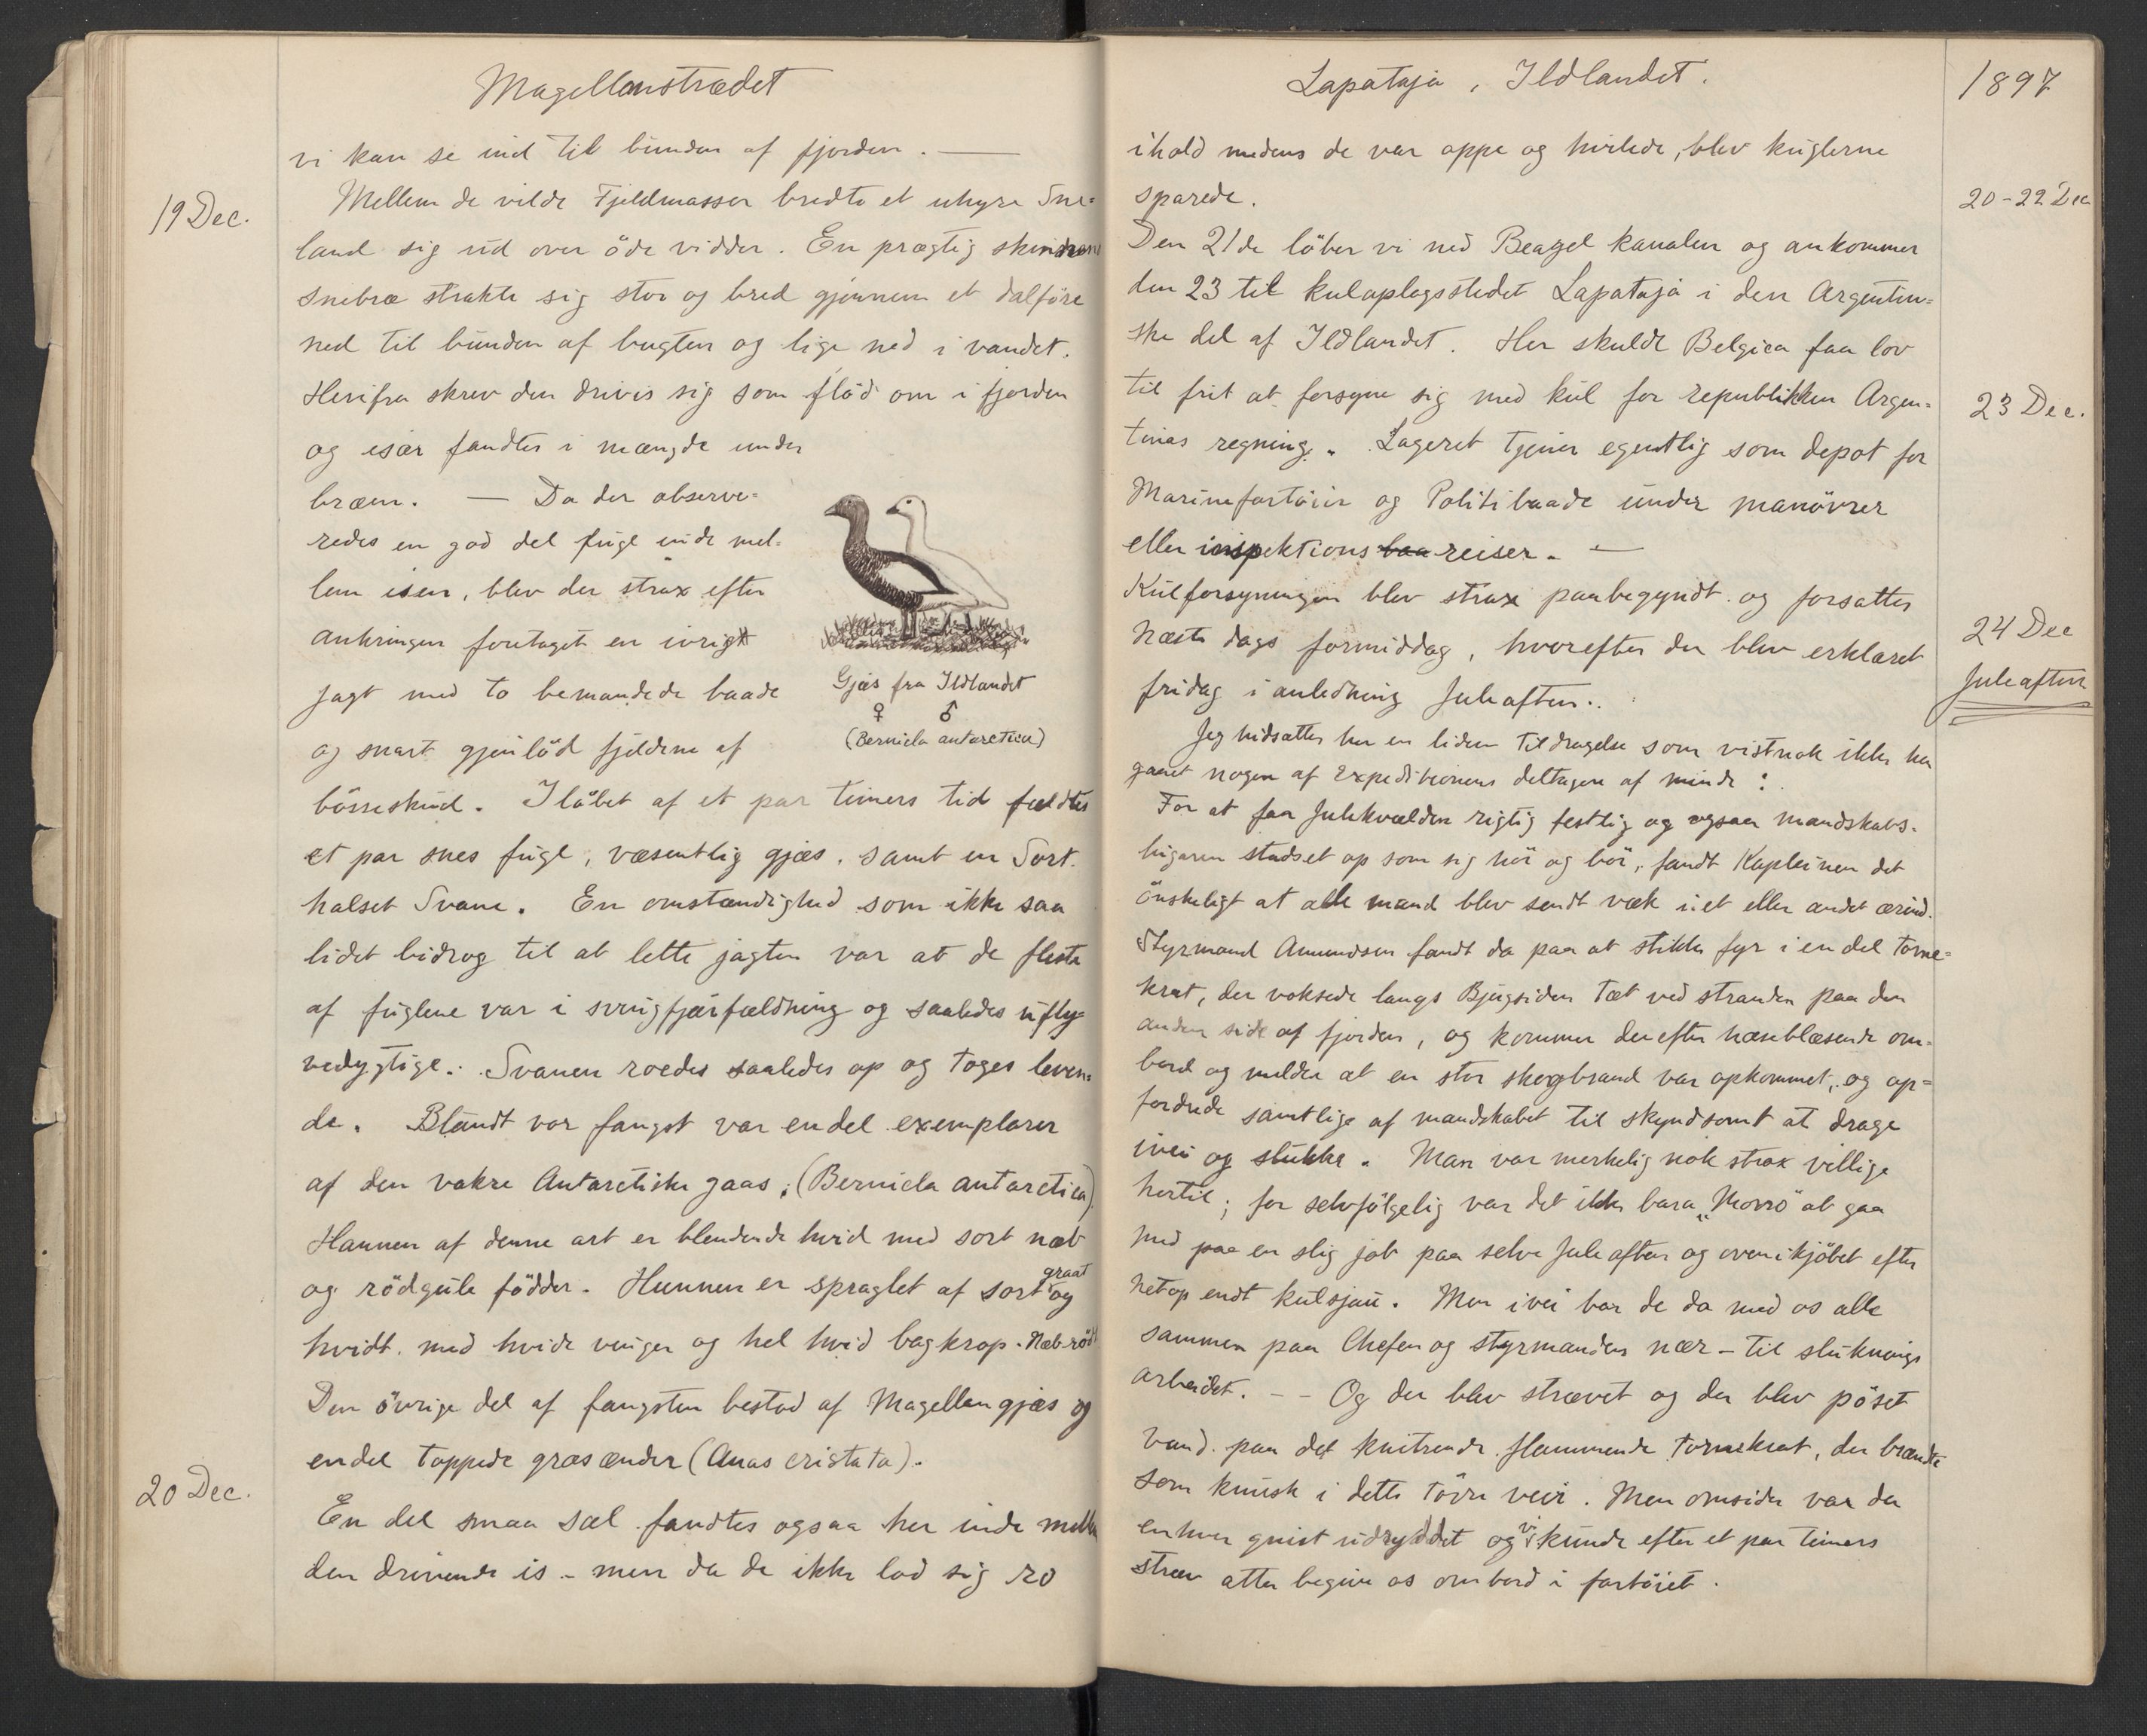 Magellanstrædet
vi kan se ind til bunden af fjorden. —
19 Dec.
Mellem de vilde Fjeldmasser bredte et uhyre Sne=
land sig ud over öde vidder. En prægtig skinnende
Snebræ strakte sig stor og bred gjennem et dalföre
ned til bunden af bugten og lige ned i vandet.
Herifra skrev den drivis sig som flöd om i fjorden
og især fandtes i mængde under
bræen. — Da der observe=
redes en god del fugl inde mel=
lem isen, blev der strax efter
ankringen foretaget en ivrig
Jagt med to bemandede baade
og snart gjenlöd fjeldene af
Gjæs fra Ildlandet
♀ ♂
(Bernicla antarctica)
bösseskud. I löbet af et par timers tid fældtes
et par snes fugl, væsentlig gjæs, samt en Sort-
halset Svane. En omstændighed som ikke saa
lidet bidrog til at lette jagten var at de fleste
af fuglene var i svingfjærfældning og saaledes ufly=
vedygtige. Svanen roedes saaledes op og toges leven=
de. Blandt vor fangst var endel exemplarer
af den vakre Antarctiske gaas; (Bernicla antarctica)
Hannen af denne art er blendende hvid med sort næb
og rödgule födder. Hunnen er spraglet af sort graat og
hvidt. med hvide vinger og hel hvid bagkrop. Næb rödt
Den övrige del af fangsten bestod af Magellangjæs og
endel toppede græsænder (Anas cristata).
20 Dec.
En del smaa sæl fandtes ogsaa her inde mellem
den drivende is – men da de ikke lod sig ro
Lapataja, Ildlandet.
1897
ihold medens de var oppe og hvilede, blev kuglerne
sparede.
20-22 Dec
Den 21de löber vi ned Beagel kanalen og ankommer
den 23 til kuloplagsstedet Lapataja i den Argentin=
ske del af Ildlandet. Her skulde Belgica faa lov
til frit at forsyne sig med kul for republikken Argen=
23 Dec.
tinas regning. Lageret tjener egentlig som depot for
Marinefartöier og Politibaade under manövrer
eller inspektions baa reiser. —
Kulforsyningen blev strax paabegyndt og forsattes
næste dags formiddag, hvorefter der blev erklæret
24 Dec
Juleaften
fridag i anledning Juleaften.
Jeg nidsætter her en liden tildragelse som vistnok ikke har
gaaet nogen af Expeditionens deltagere af minde:
For at faa Julekvælden rigtig festlig og ogsaa mandskabs-
lugaren stadset op som sig hör og bör, fandt Kapteinen det
önskeligt at alle mand blev sendt væk i et eller andet ærind.
Styrmand Amundsen fandt da paa at stikke fyr i en del torne=
krat, der voksede langs Bjugsiden tæt ved stranden paa den
anden side af fjorden, og kommer derefter næseblæsende om-
bord og melder at en stor skogbrand var opkommet, og op=
fordrede samtlige af mandskabet til skyndsomt at drage
ivei og slukke. Man var merkelig nok strax villige
hertil; for selvfölgelig var det ikke bara "Morro" at gaa
med paa en slig job paa selve Juleaften og ovenikjöbet efter
netop endt kulsjau. Men ivei bar de da med os alle
sammen paa Chefen og styrmanden nær – til sluknings
arbeidet. – – Og der blev strævet og der blev pöset
vand paa det knitrende flammende tornekrat, der brændte
som knusk i dette törre veir. Men omsider var da
enhver gnist udryddet og vi kunde efter et par timers
stræv atter begive os ombord i fartöiet.